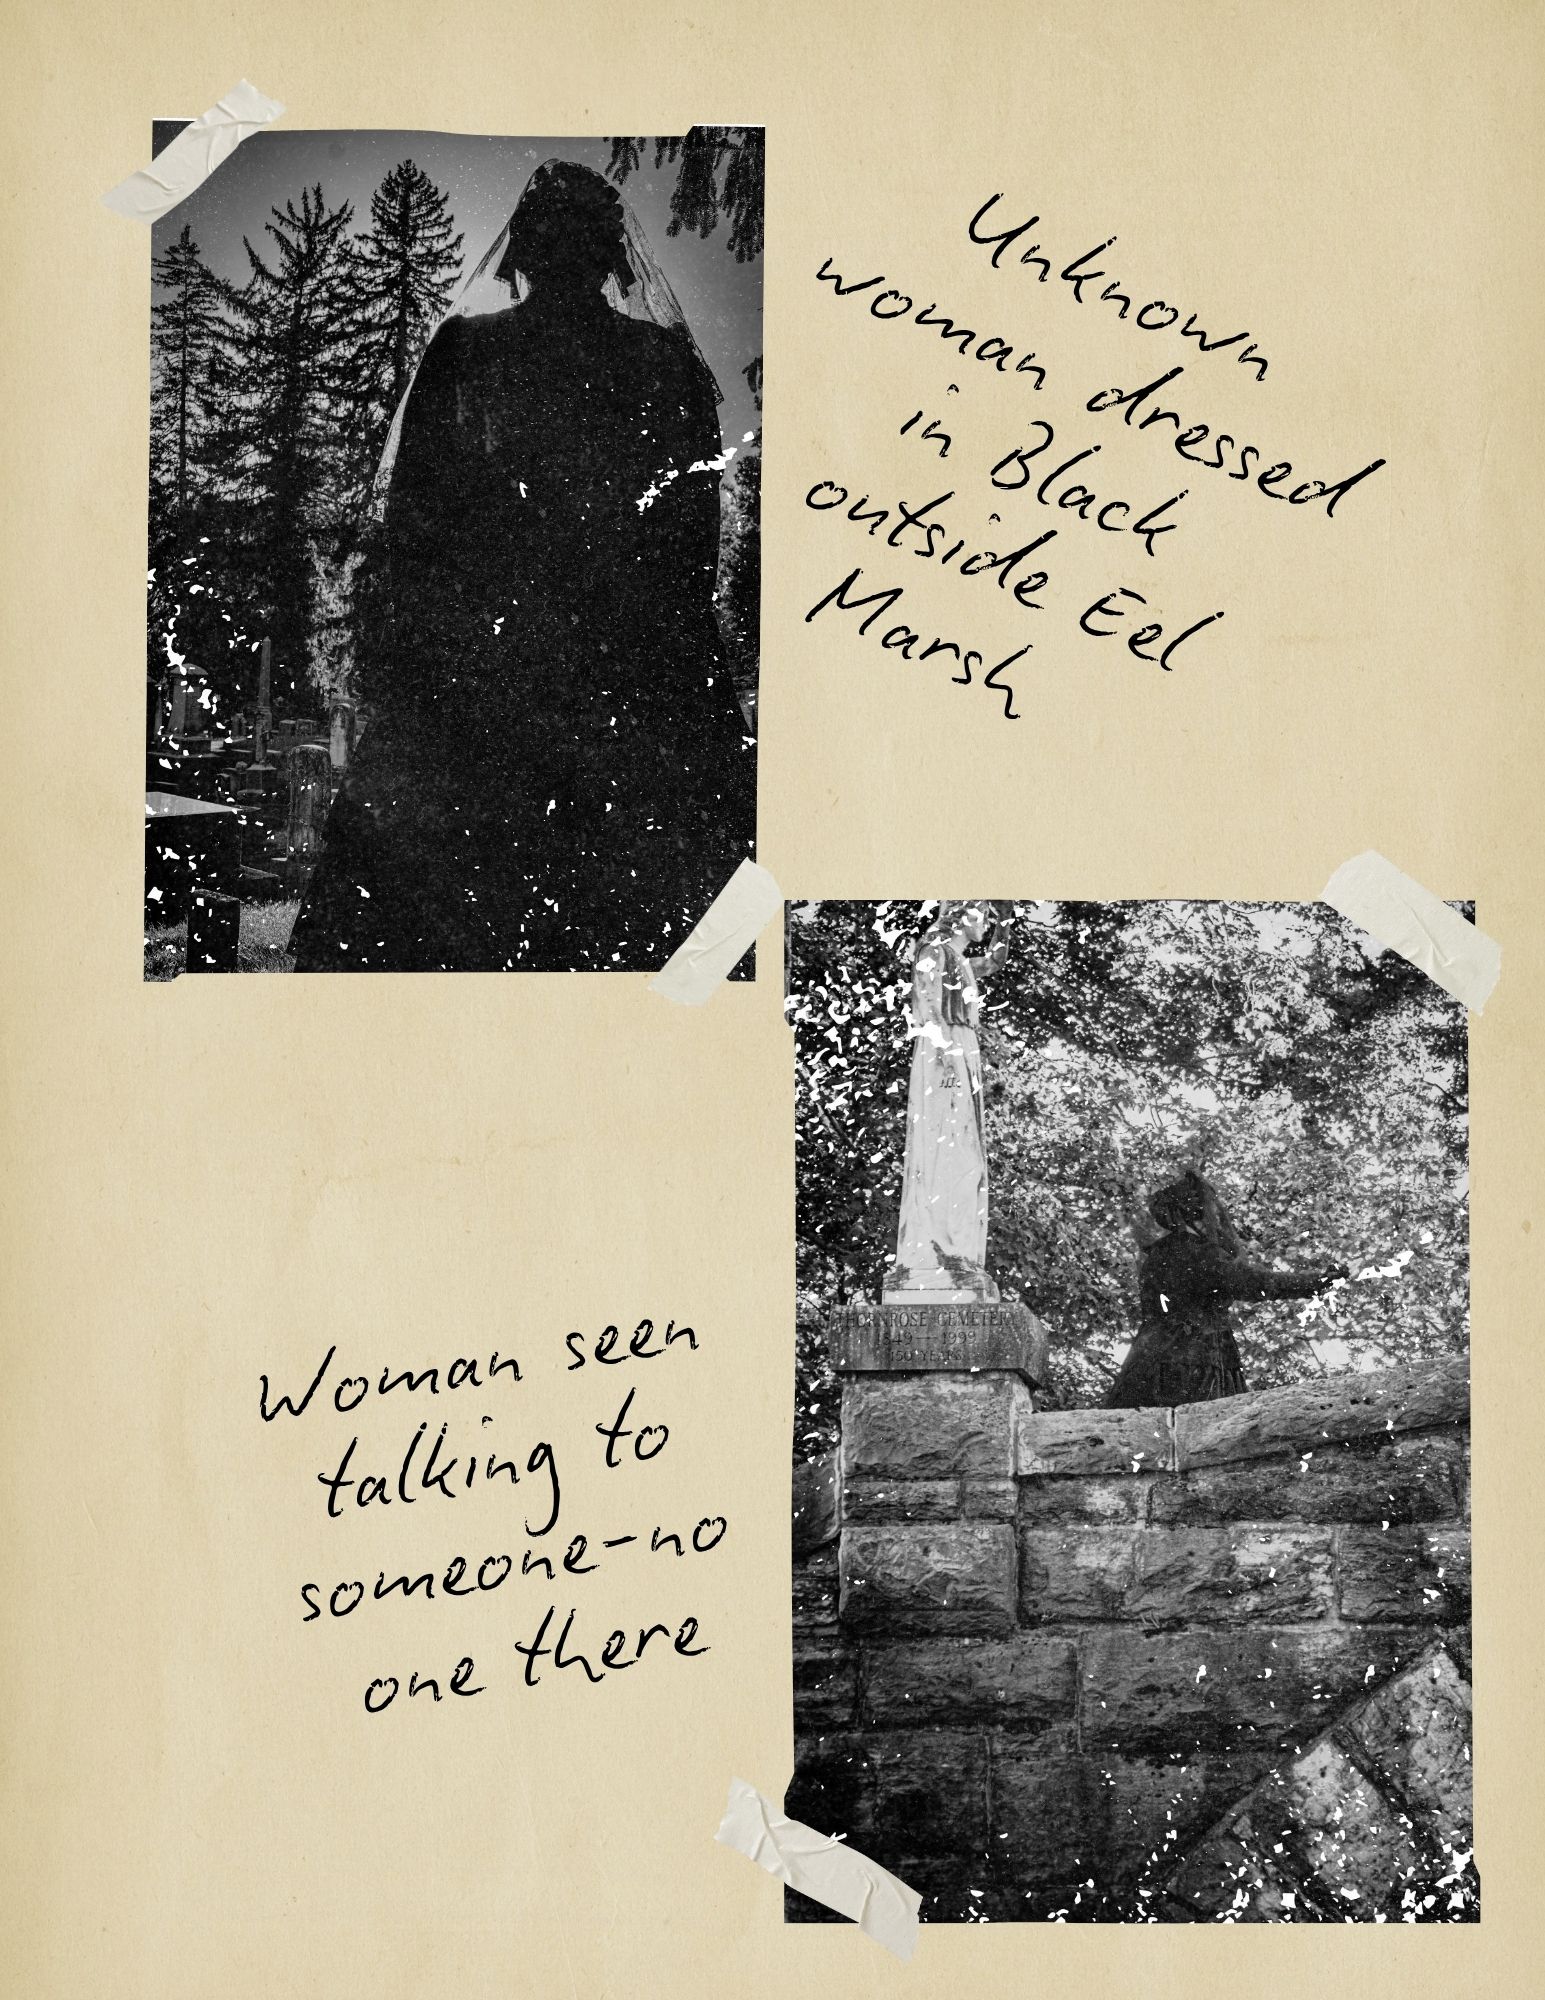 Unknown
woman dressed
in Black
outside Eel
Marsh
THORNROSE CEMETERY
1849 — 1999
150 YEARS
Woman seen
talking to
someone-no
one there